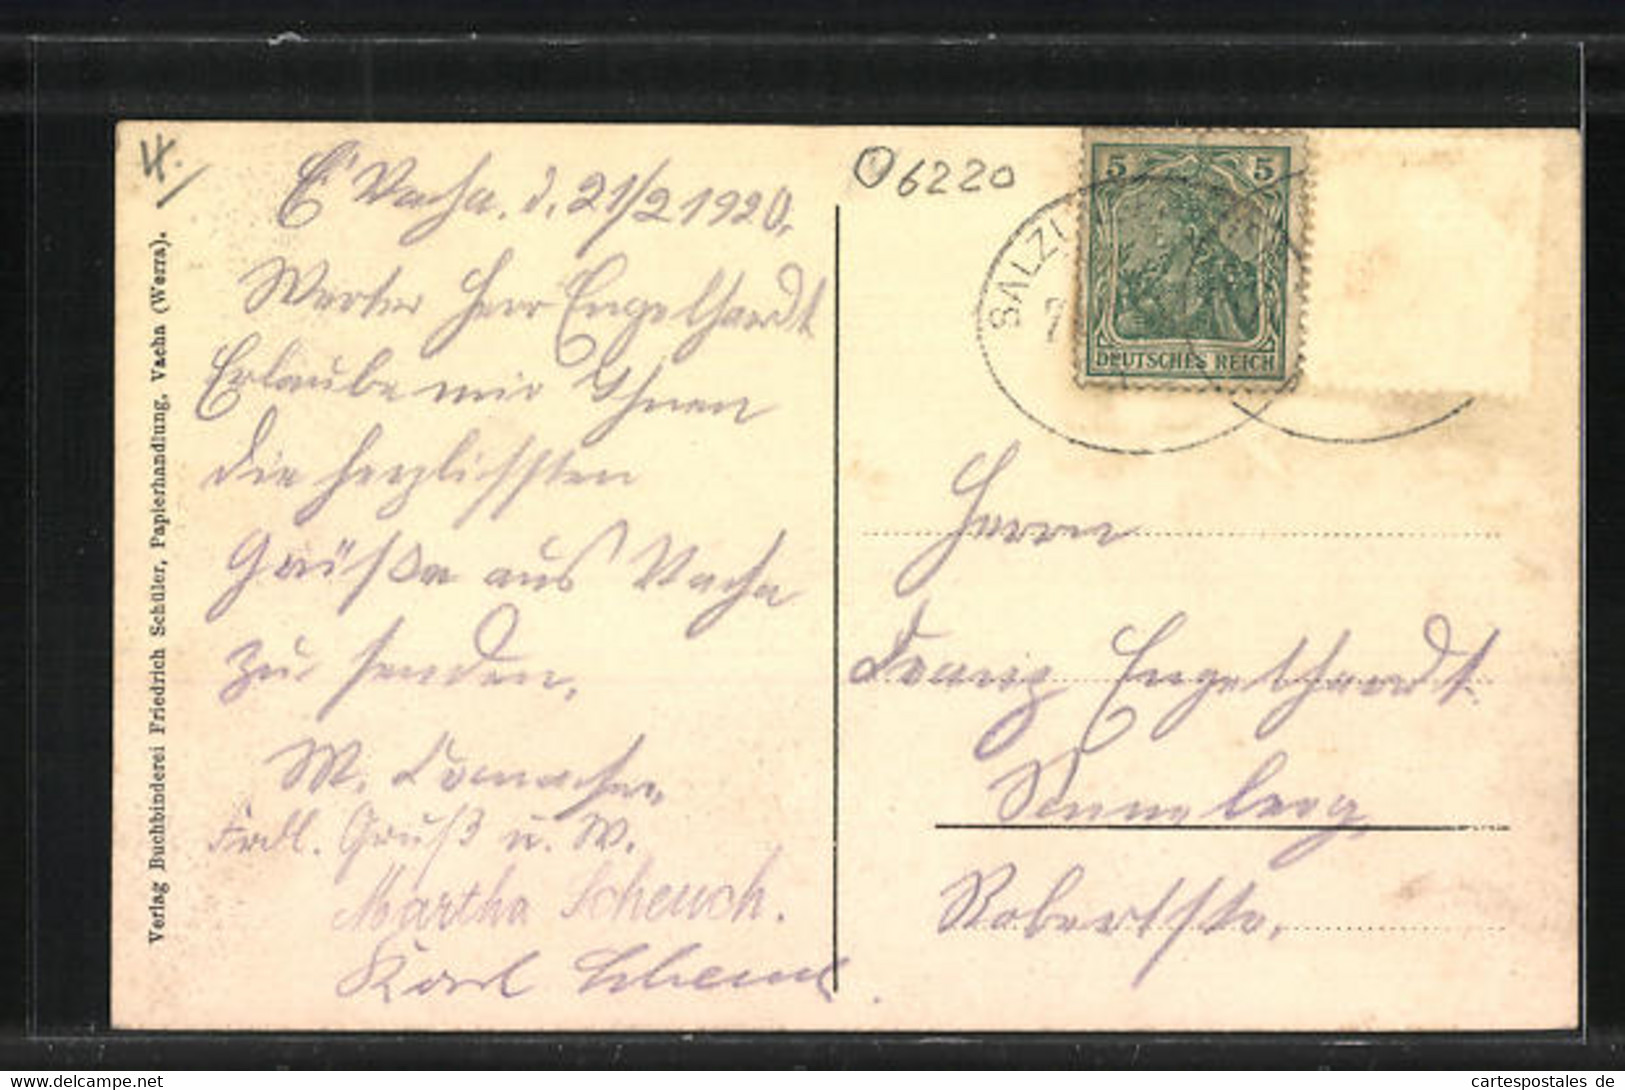 H.
Vacha. d. 21/2 1920.
Werter Herr Engelhardt
Erlaube mir Ihnen
die herzlichsten
Grüße aus Vacha
zu senden.
W.
Frdl. Gruß u. W.
Martha Scheuch.
Karl Scheuch.
Verlag Buchbinderei Friedrich Schüler, Papierhandlung, Vacha (Werra).
06220
5 5
DEUTSCHES REICH
SALZU
Herrn
Franz Engelhardt
Sonneberg
Robertstr.
cartespostales de